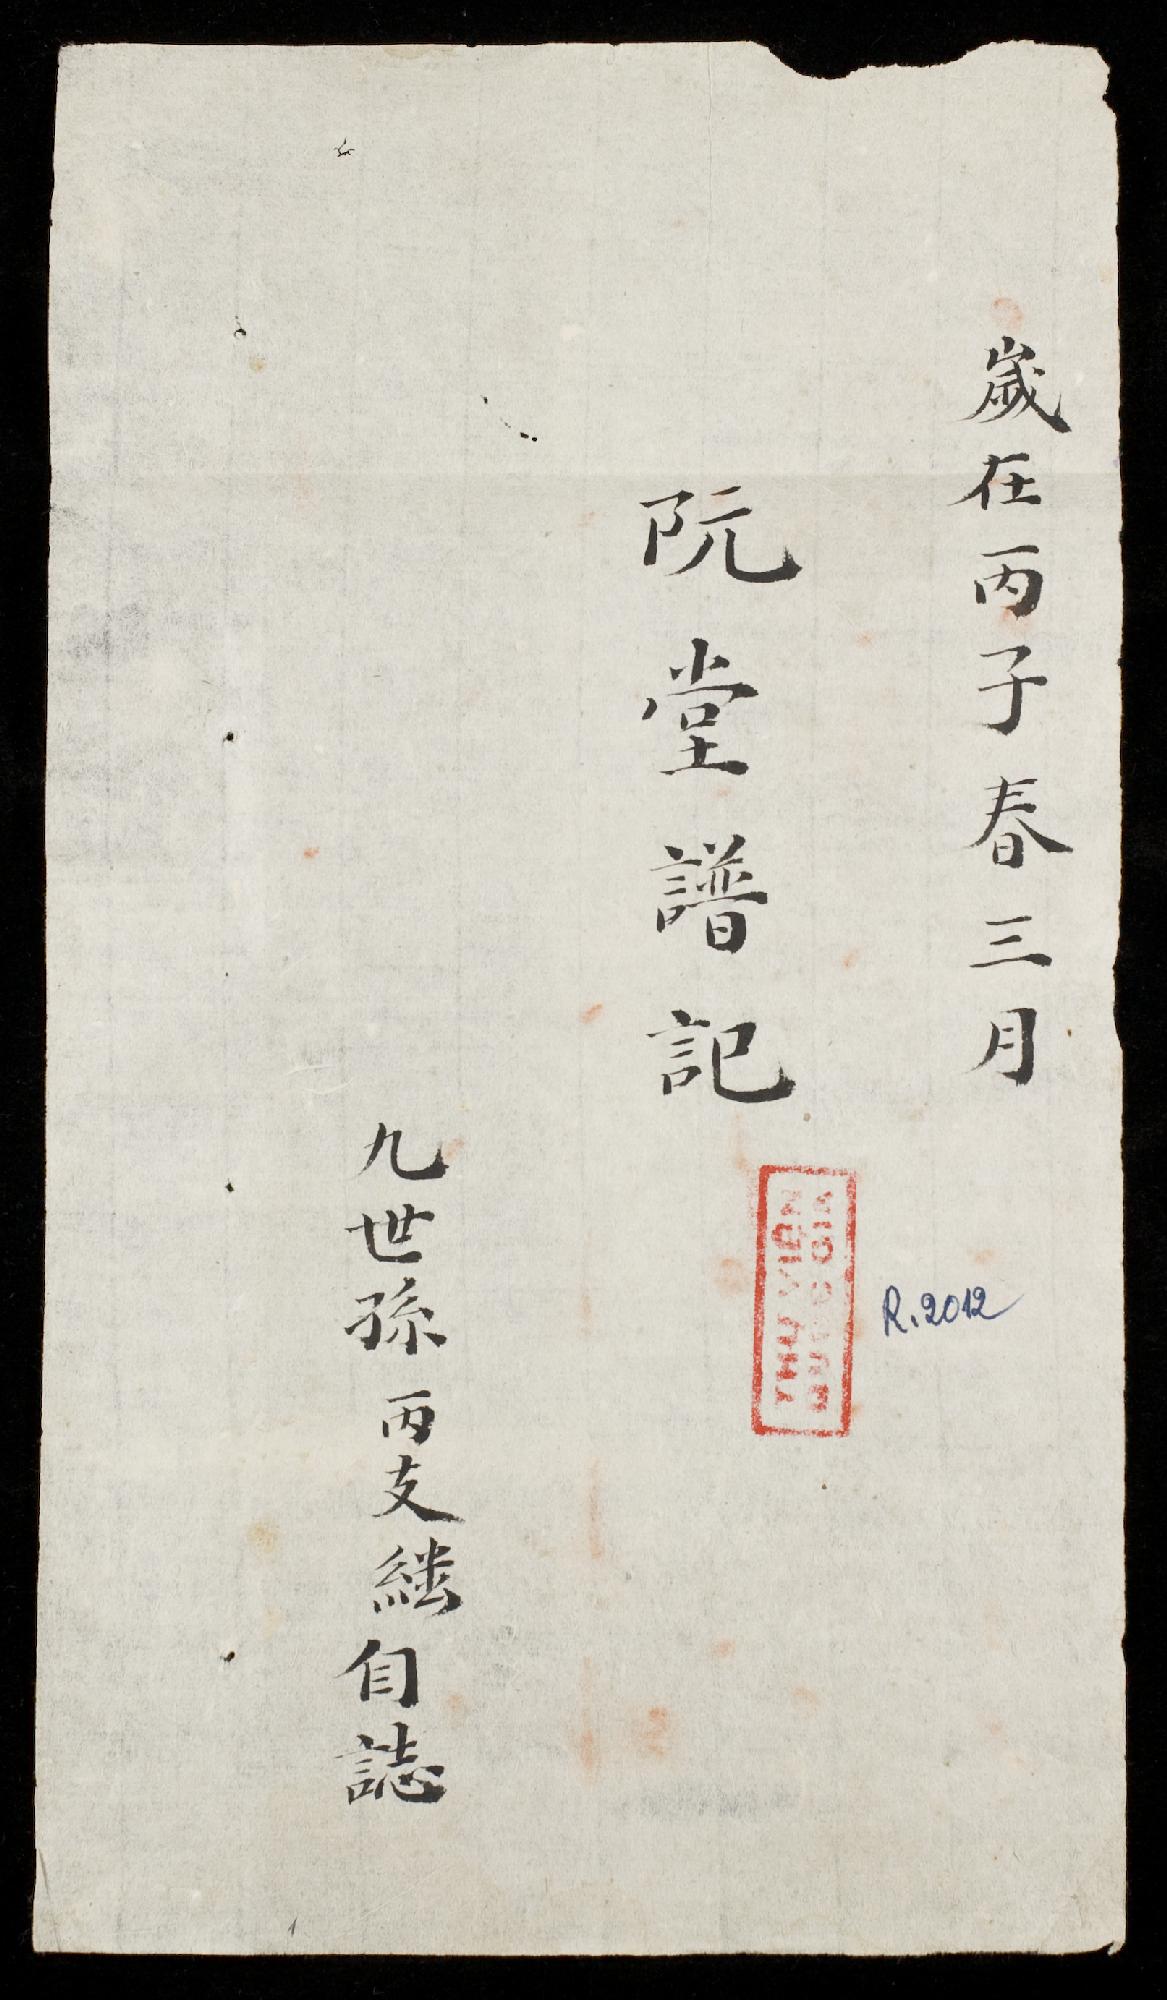 歲在丙子春三月
阮堂譜記
THƯ VIỆN
R.2012
九世孫丙支自誌